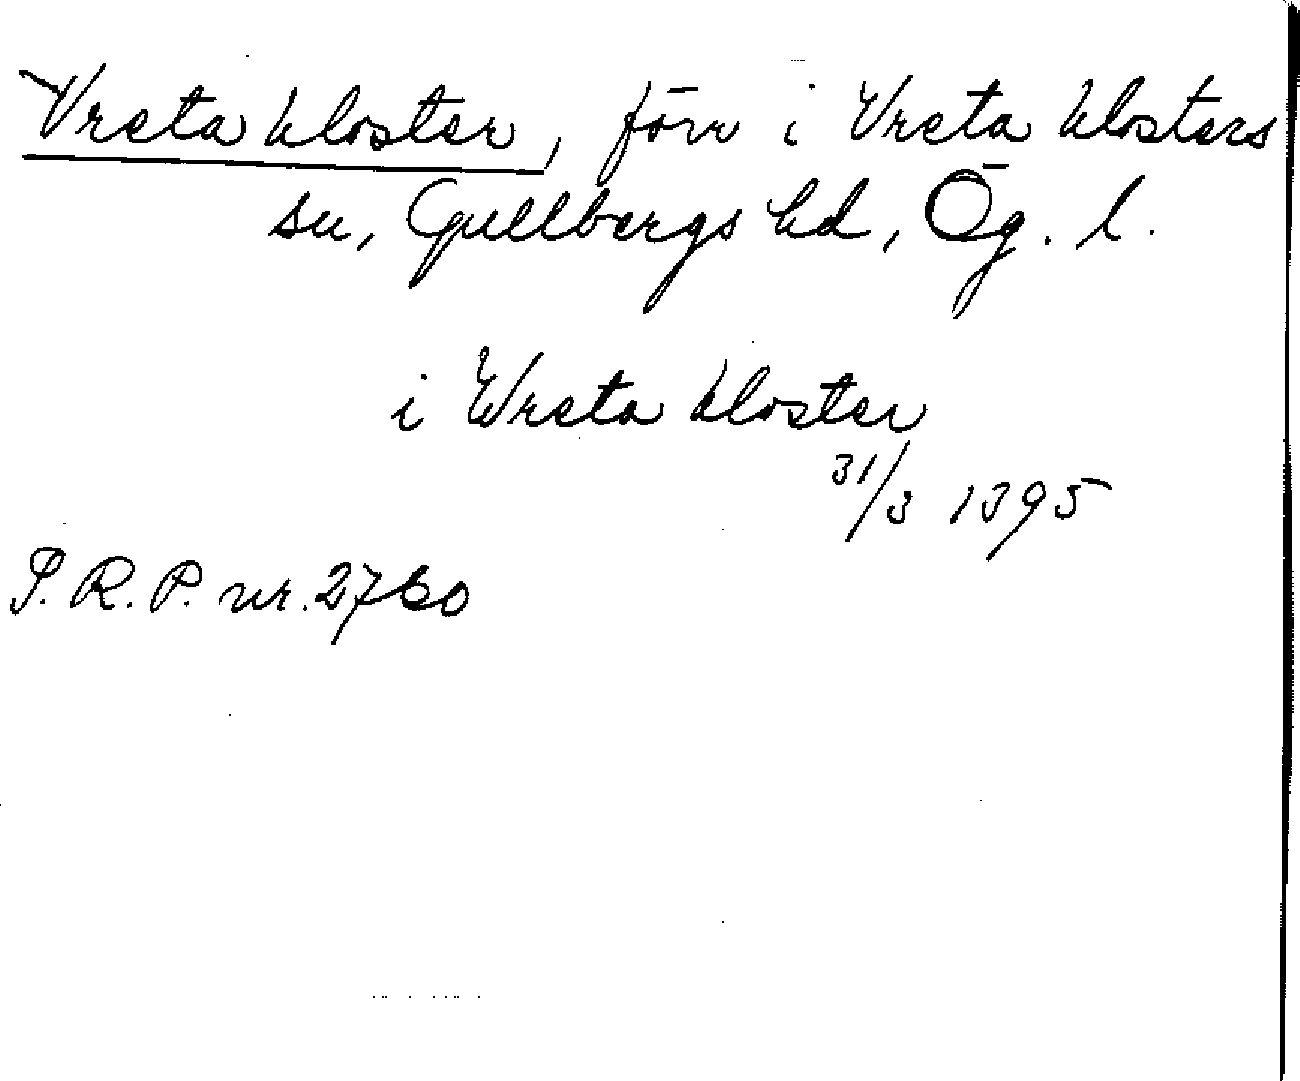 Vreta kloster, förr i Vreta klosters
sn, Gullbergs hd, Ög. l.
i Wreta kloster
31/3 1395
S. R. P. nr. 2760